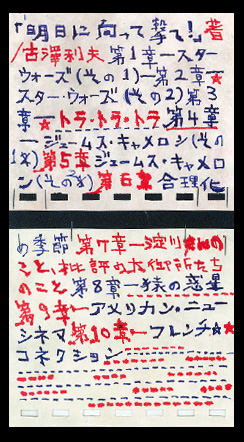 『明日に向って撃て!』著
/古澤利夫 第1章―スター
ウォーズ(その1)―第2章★
スター・ウォーズ(その2)第3
章―★トラ・トラ・トラ 第4章
―ジェームス・キャメロン(その
1)第5章ジェームス・キャメロ
ン(その2)第6章 合理化
の季節 第7章―淀川さんの
こと、批評の大御所たち
のこと 第8章―猿の惑星
第9章―アメリカン・ニュー
シネマ 第10章―フレンチ★★
コネクション